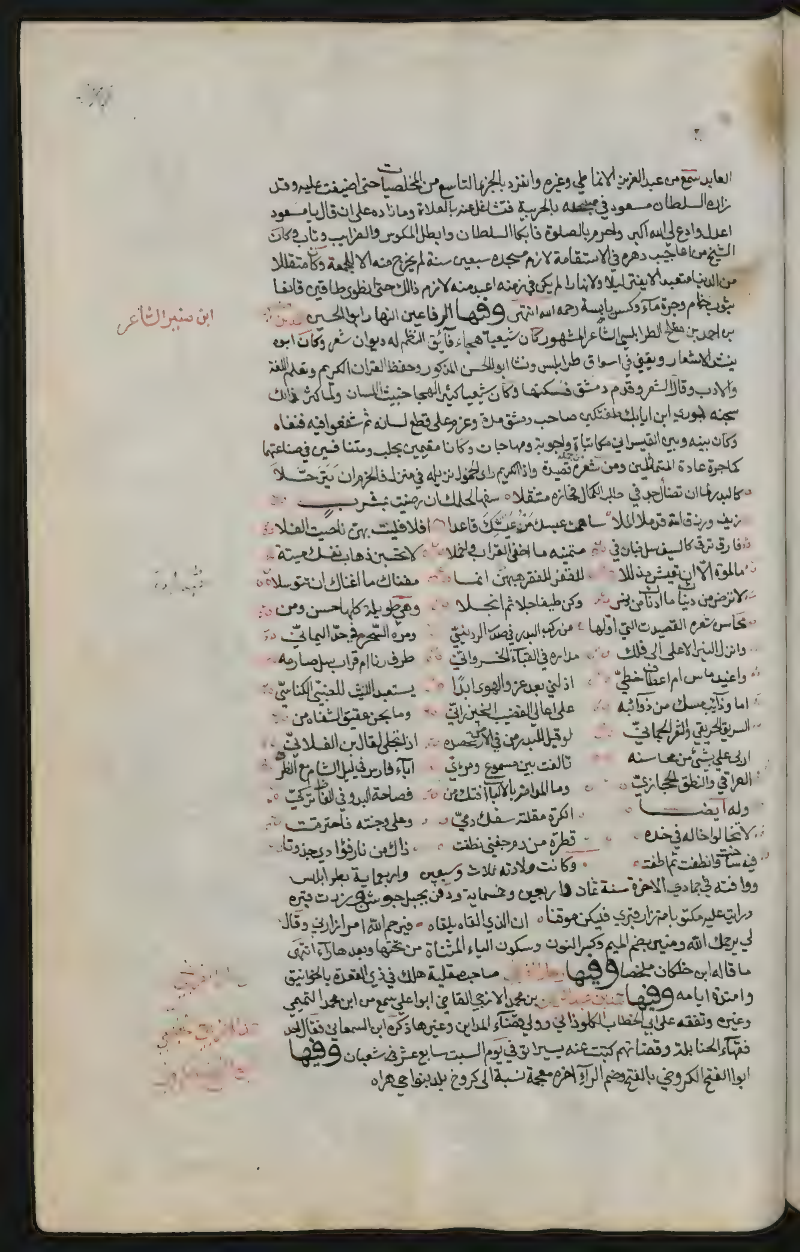 العابد سمع من عبد العزيز الانماطي وغيره وانفرد بالجزء التاسع من المخلصيات حتى اضيفت عليه وقد
زاره السلطان مسعود في مسجده بالحربية فتشاغل عنه بالصلاة وما زاده على ان قال يا مسعود
اعدل وادع لي الله اكبر واحرم بالصلوة فابكا السلطان وابطل المكوس والضرايب وتاب وكان
الشيخ من اعاجيب دهره في الاستقامة لازم مسجده سبعين سنة لم يخرج منه الا للجمعة وكان متقللا
من الدنيا متعبدا لا يفتر ليلا ولا نهارا لم يكن في زمنه اعبد منه لازم ذالك حتى انطوى طاقين قانعا
بثوب خام وجرة ماء وكسر يابسة رحمه الله انتهى وفيها الرفا عين الدنيا ابو الحسين
بن احمد بن مفلح الطرابلسي الشاعر المشهور كان شيعيا هجاء فايق النظم له ديوان شعر وكان ابوه
ينشد الاشعار ويغني في اسواق طرابلس ونشا ابو الحسن المذكور وحفظ القران الكريم وتعلم اللغة
والادب وقال الشعر وقدم دمشق فسكنها وكان شيعيا كثير الهجا خبيث اللسان ولما كثر ذالك
سجنه بوري ابن اتابك طغتكين صاحب دمشق مدة وعزم على قطع لسانه ثم شفعوا فيه فنفاه
وكان بينه وبين القيسراني مكاتبات واجوبة ومهاجات وكانا مقيمين بحلب ومتنافسين في صناعتهما
كما جرة عادة المتماثلين ومن شعره من جملة قصيدة واذا الكريم راى الخمول نزيله في منزل فالحزم ان يترحلا
كالبدر لما ان تضاءل جد في طلب الكمال فحازه متنقلا سفها لحلمك ان رضيت بمشرب
رنق ورزق الله قد ملا الملا ساهمت عيسك مر عيشك قاعدا افلا فليت بهن ناصية الفلا
فارق ترق كالسيف سل فبان في متنيه ما اخفى القراب واخملا لا تحسبن ذهاب نفسك ميتة
ما الموت الا ان تعيش مذللا للقفر لا للفقر هبها انما مغناك ما اغناك ان تتوسلا
لا ترض من دنياك ما ادناك من دنس وكن طيفا جلا ثم انجلا وهي طويلة كلها حسن ومن
محاسن شعره القصيدة التي اولها من ركب البدر في صدر الرديني وموه السحر في حد اليماني
وانزل النير الاعلى الى فلك مداره في القباء الخسرواني طرف رنا ام قراب سل صارمه
واغيد ماس ام اعطاف خطي اذلني بعد عز والهوى ابدا يستعبد الليث للظبي الكناسي
اما وذائب مسك من ذوائبه على اعالي القضيب الخيزراني وما يجن عقيقي الشفاه من
الريق الرحيقي والثغر الجماني لو قيل للبدر من في الارض تحسده اذا تجلى لقال ابن الفلاني
اربى علي بشيء من محاسنه تالفت بين مسموع ومرئي اباء فارس في لين الشام مع الظرف
العراقي والنطق الحجازي وما المدامة بالالباب افتك من فصاحة البدو في الفاظ تركي
وله ايضا انكرت مقلته سفك دمي وعلى وجنته فاعترفت
لا تخالوا خاله في خده قطرة من دم جفني نطفت ذاك من نار فؤادي جذوة
فيه ساخت وانطفت ثم طفت وكانت ولادته ثلاث وسبعين واربعماية بطرابلس
ووافته في جمادي الاخرة سنة ثمان واربعين وخمسماية ودفن بجبل جوشن وزرت قبره
ورايت عليه مكتوبا من زار قبري فليكن موقنا ان الذي القاه يلقاه فيرحم الله امرا زارني وقال
لي يرحمك الله ومنير بضم الميم وكسر النون وسكون الياء المثناة من تحتها وبعدها راء انتهى
ما قاله ابن خلكان ملخصا وفيها صاحب صقلية هلك في ذي القعدة بالخوانيق
وامتدة ايامه وفيها بن محمد الازجي القاضي ابو علي سمع من ابن محمد التميمي
وغيره وتفقه على ابي الخطاب الكلوذاني وولي قضاء المداين وغيرها ذكره ابن السمعاني فقال احد
فقهاء الحنابلة وقضاتهم كتبت عنه يسيرا توفي يوم السبت سابع عشر في شعبان وفيها
ابو الفتح الكروخي بالفتح وضم الراء اخره معجمة نسبة الى كروخ بلد بنواحي هراه
ابن منير الشاعر